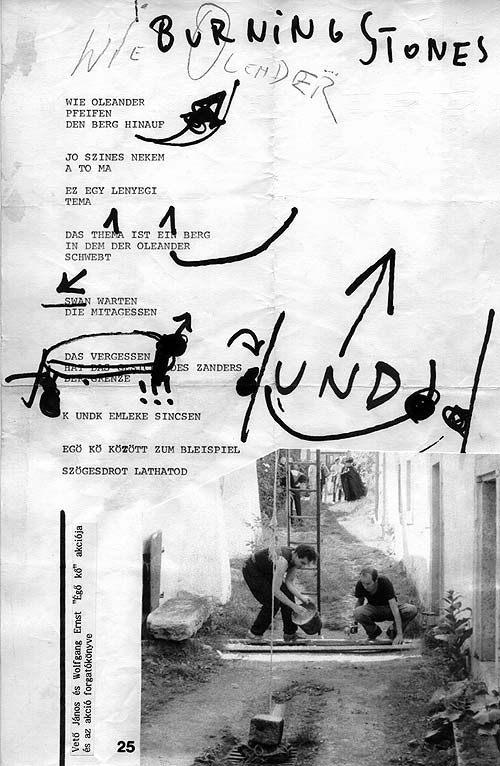 BURNING STONES
WIE OLEANDER
WIE OLEANDER
PFEIFEN
DEN BERG HINAUF
JO SZINES NEKEM
A TO MA
EZ EGY LENYEGI
TEMA
DAS THEMA IST EIN BERG
IN DEM DER OLEANDER
SCHWEBT
SWAN WARTEN
DIE MITAGESSEN
DAS VERGESSEN
HAT DAS DES ZANDERS
DER GRENZE
!!!
UND
K UNDK EMLEKE SINCSEN
EGÖ KÖ KÖZÖTT ZUM BLEISPIEL
SZÖGESDROT LATHATOD
Vető János és Wolfgang Ernst "Égő kő" akciója
és az akció forgatókönyve
25